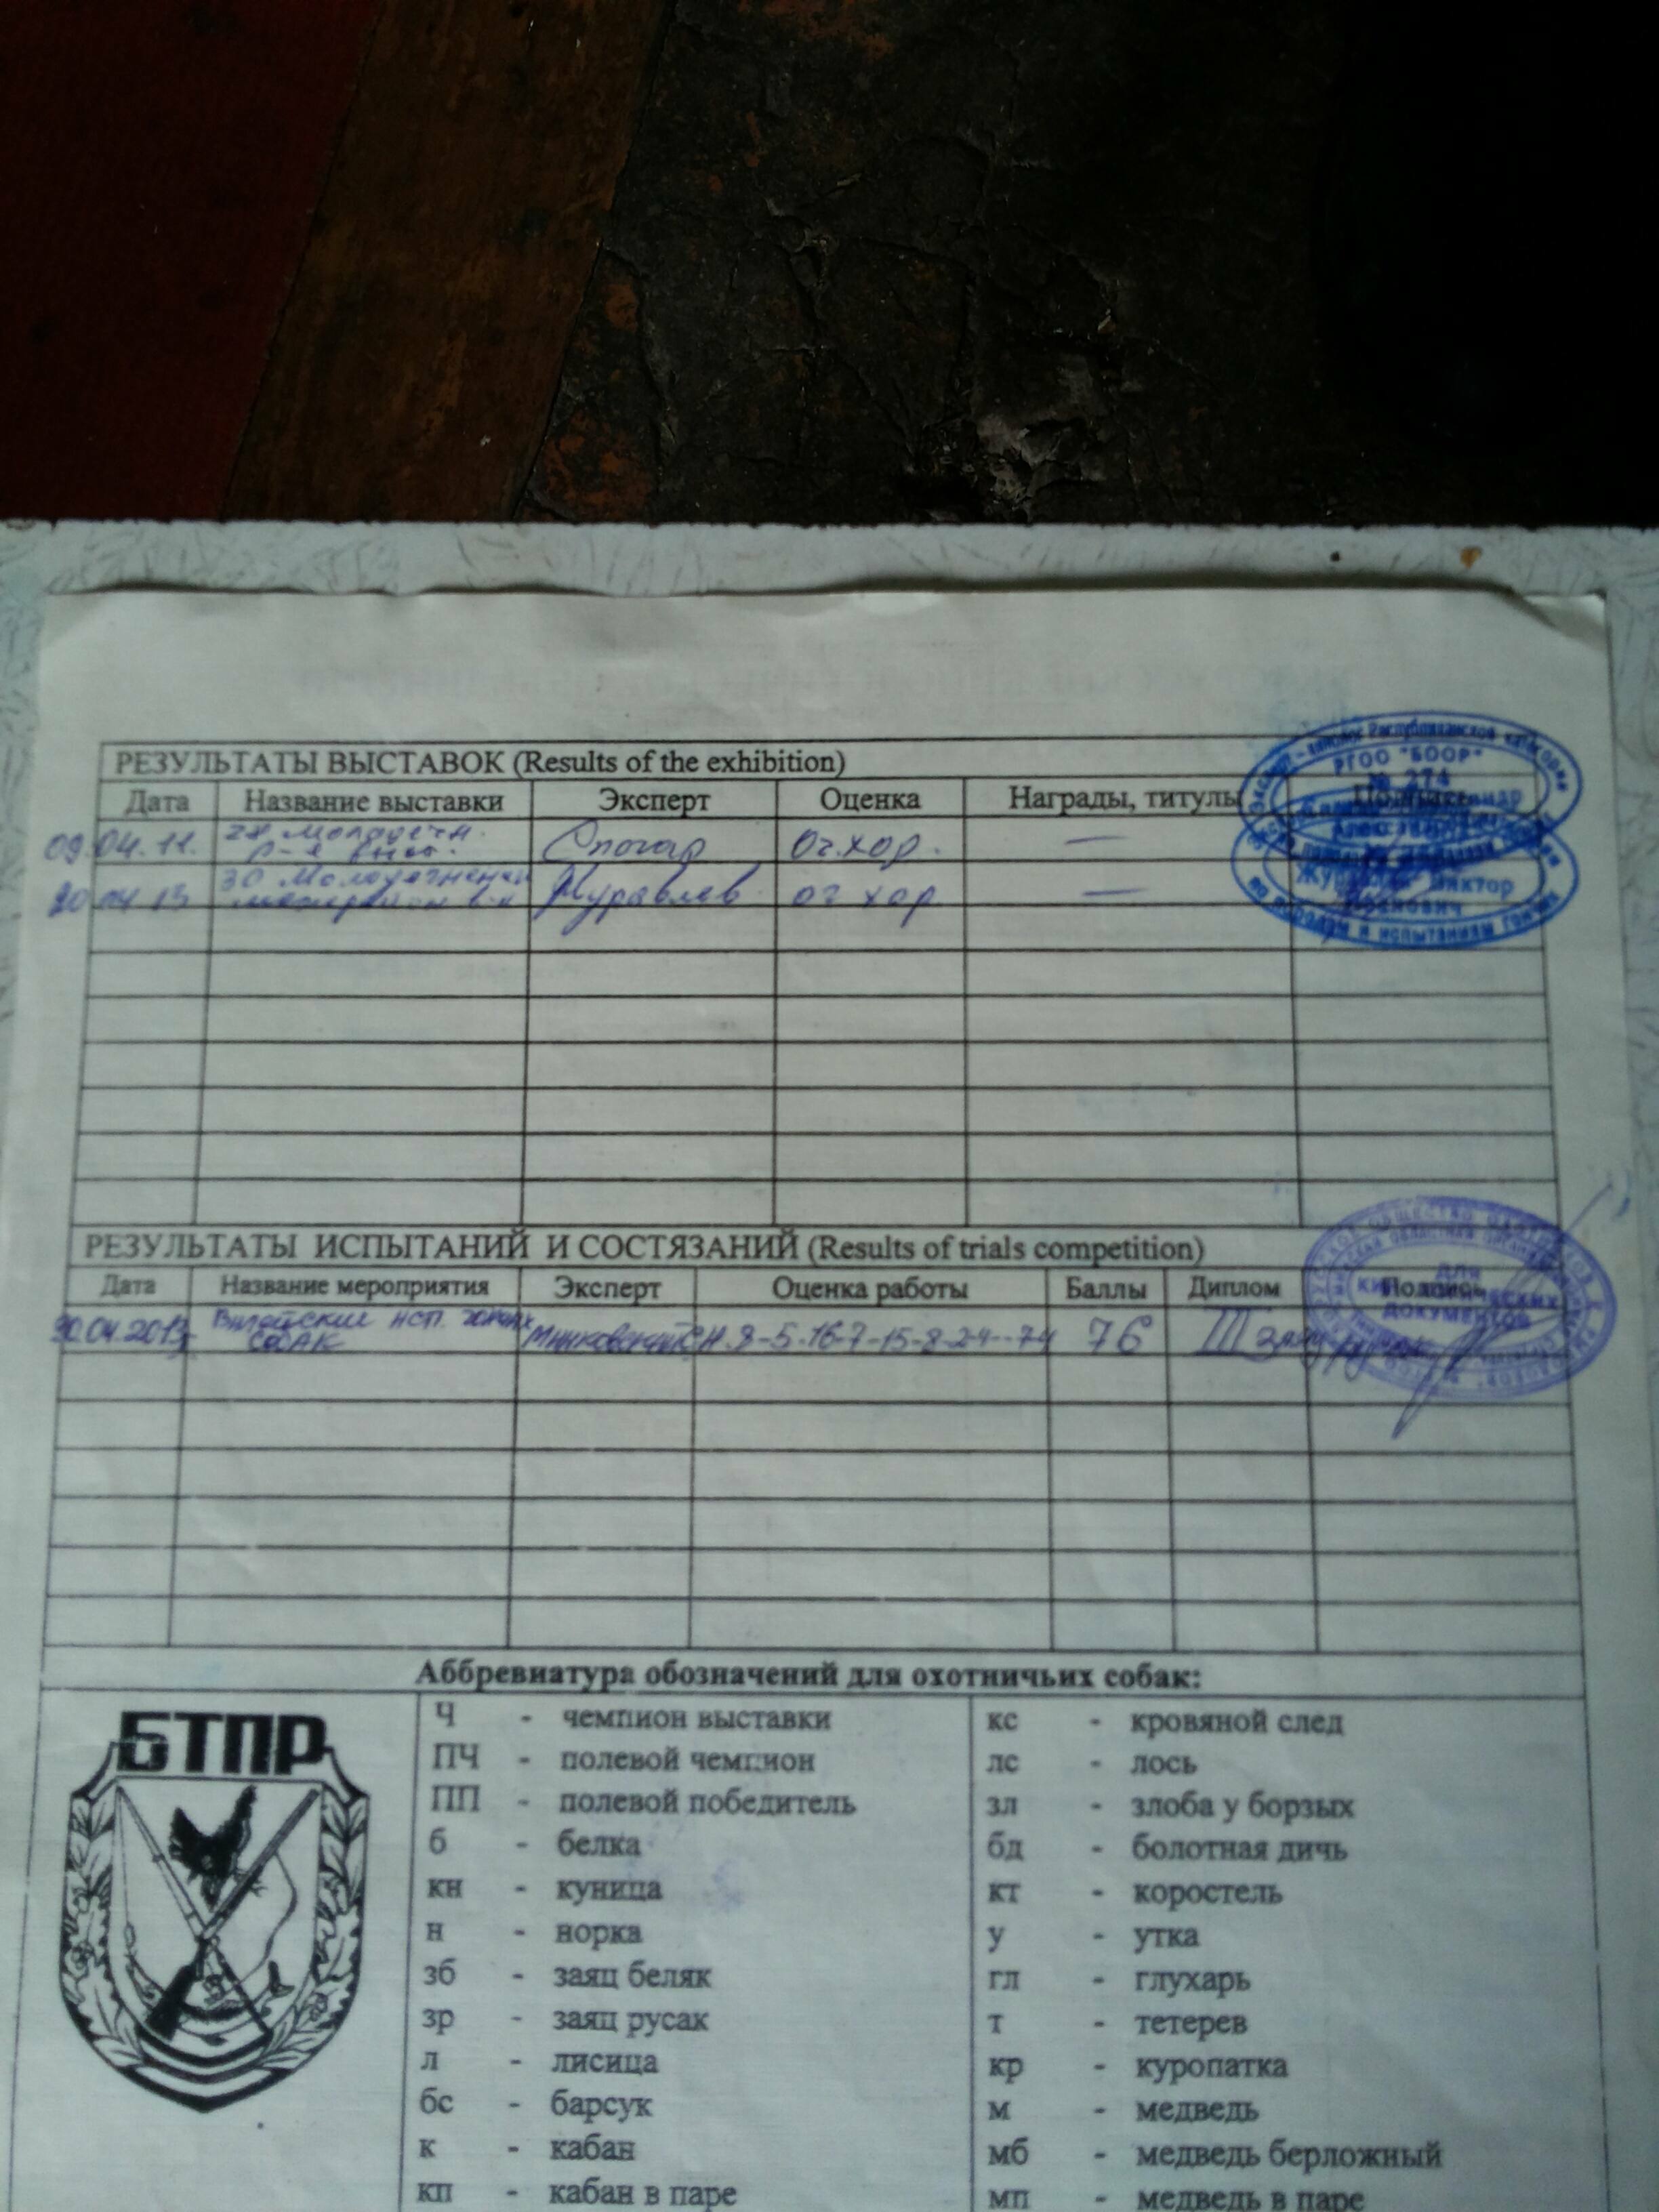 РЕЗУЛЬТАТЫ ВЫСТАВОК (Results of the exhibition)
Дата Название выставки Эксперт Оценка Награды, титулы Подпись
09.04.11. 28 Молодечн. Спогар Оч.хор. —
20.04.13 30 Молодечненск Журавлев оч хор —
РГОО "БООР"
№ 274
Журавлев Виктор
по породам и испытаниям гончих
РЕЗУЛЬТАТЫ ИСПЫТАНИЙ И СОСТЯЗАНИЙ (Results of trials competition)
Дата Название мероприятия Эксперт Оценка работы Баллы Диплом Подпись
30.04.2013 Вилейские исп. гончих Минковский 76 III
собак
ДЛЯ
КИНОЛОГИЧЕСКИХ
ДОКУМЕНТОВ
Аббревиатура обозначений для охотничьих собак:
БТПР
Ч - чемпион выставки кс - кровяной след
ПЧ - полевой чемпион лс - лось
ПП - полевой победитель зл - злоба у борзых
б - белка бд - болотная дичь
кн - куница кт - коростель
н - норка у - утка
зб - заяц беляк гл - глухарь
зр - заяц русак т - тетерев
л - лисица кр - куропатка
бс - барсук м - медведь
к - кабан мб - медведь берложный
кп - кабан в паре мп - медведь в паре